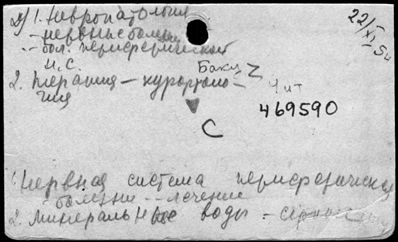 2) 1. Невропатология
- нервные болезни
- бол. периферической
н.с.
Баку
2. терапия - курортоло-
гия
Чит
22/XI-54
469590
С
1. Нервная система периферическая
болезни -- лечение
2. минеральные воды -